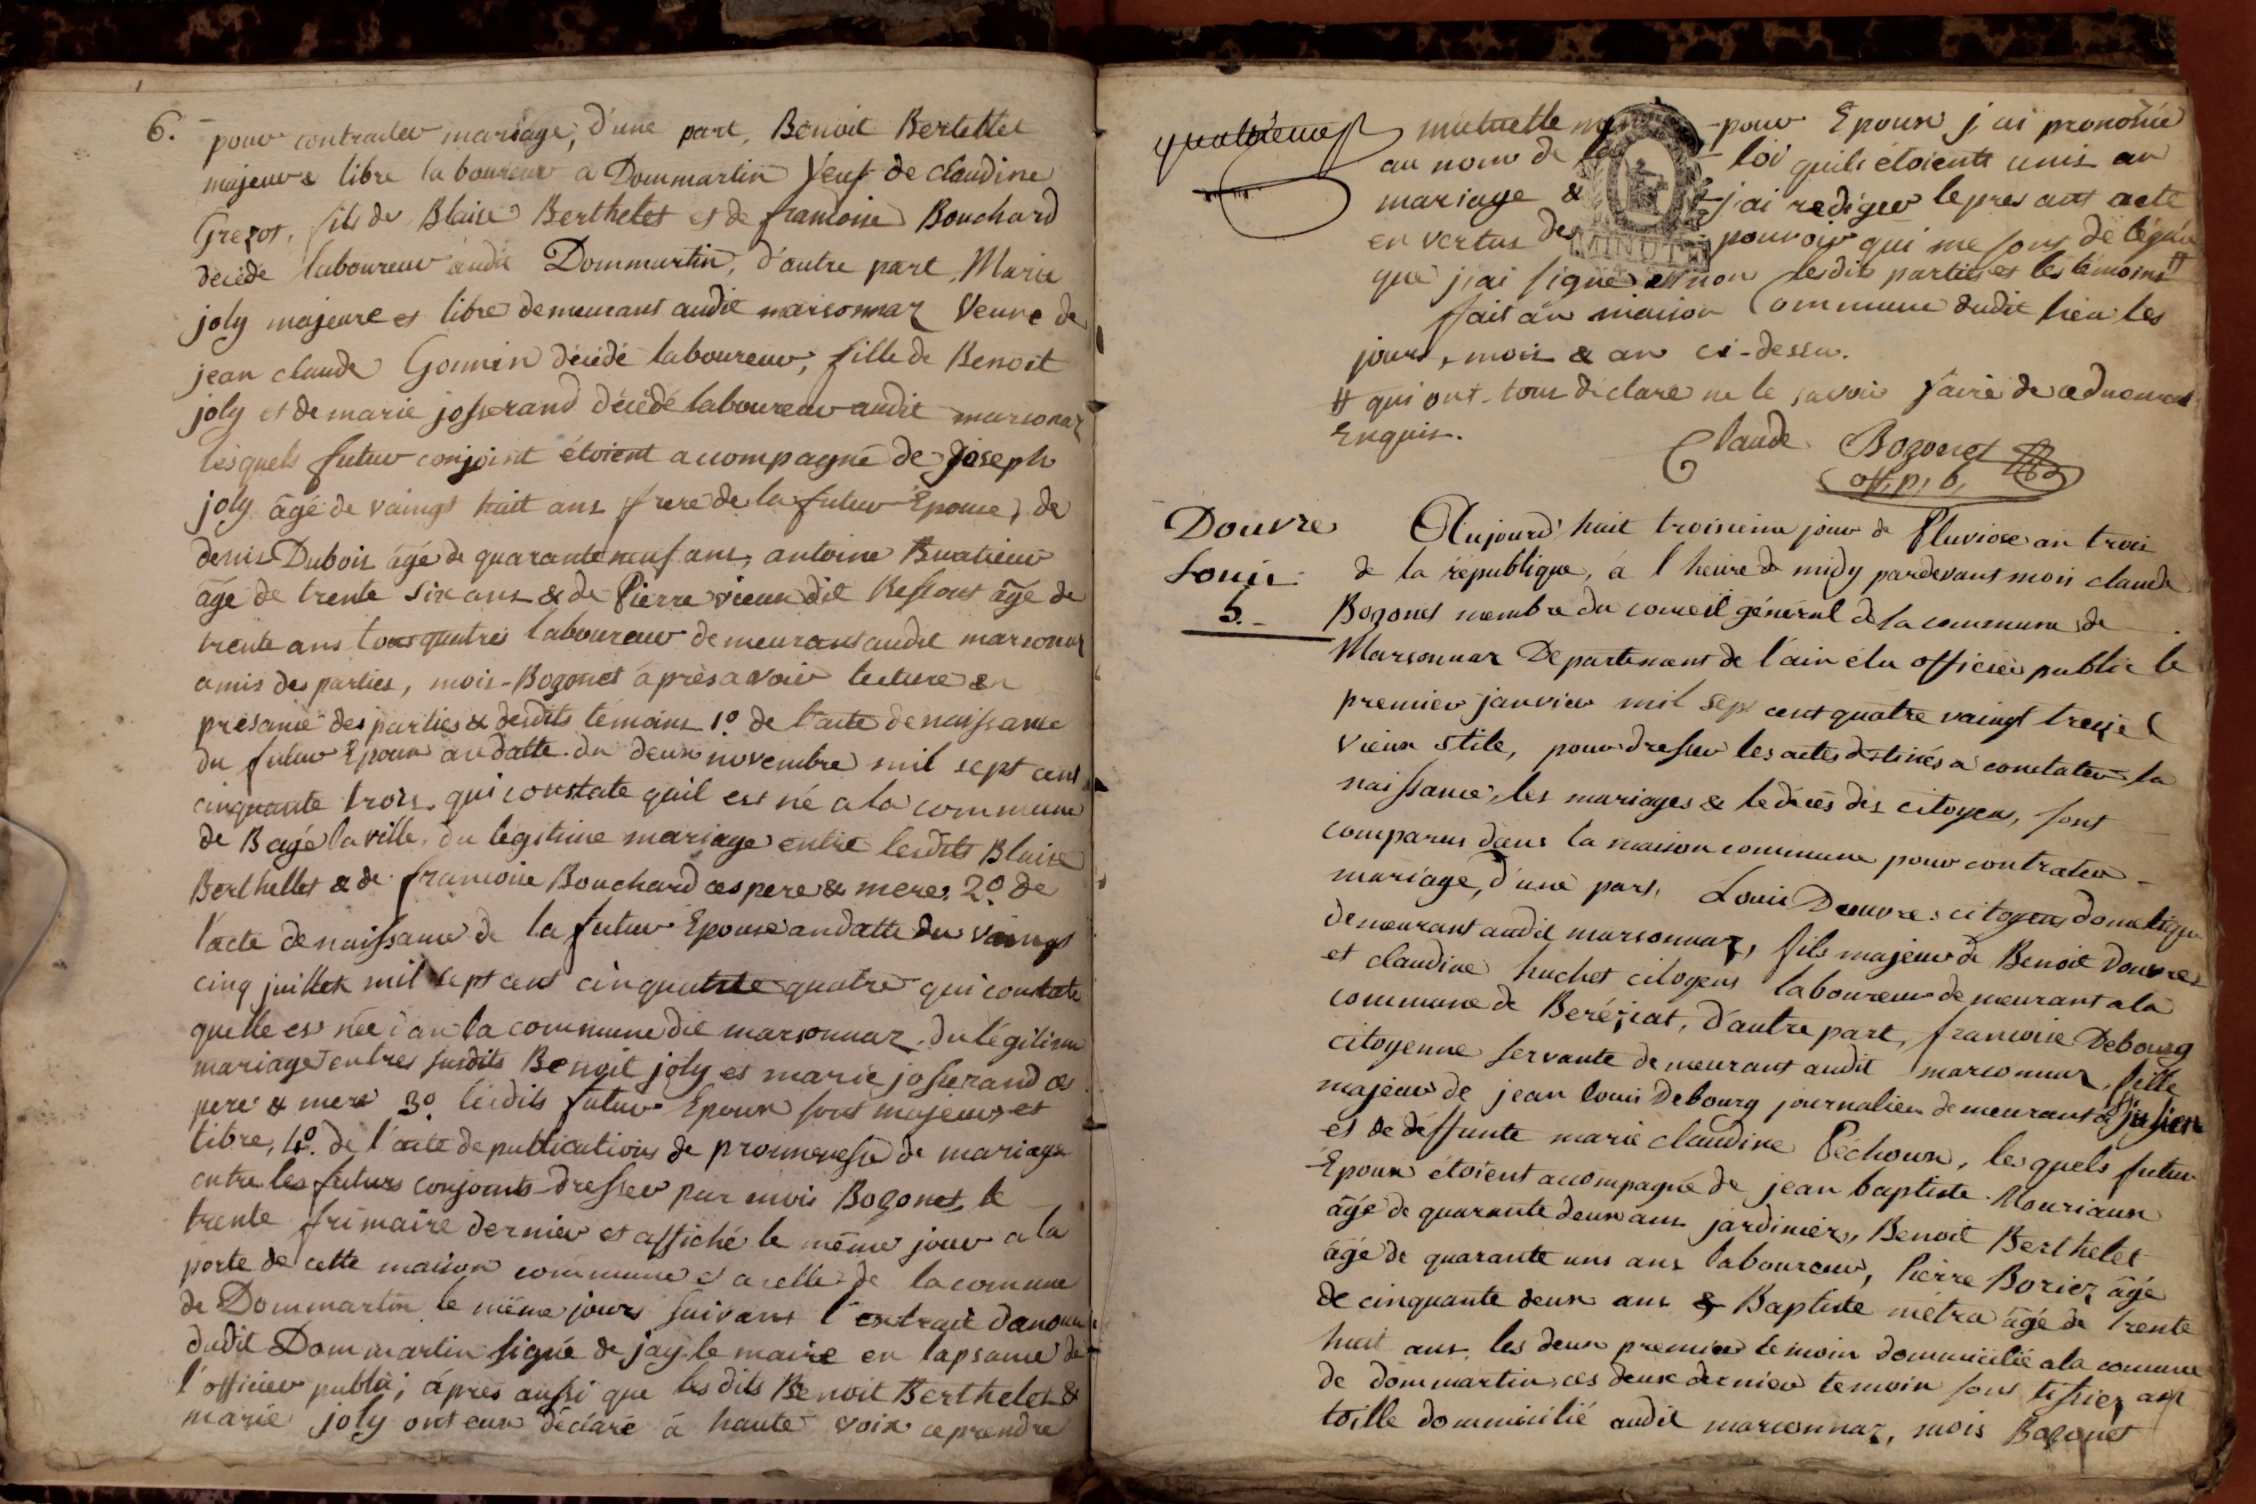 6.
pour contracter mariage, d'une part, Benoit Berthelet
majeur & libre laboureur a Dommartin Veuf de claudine
Grezot, fils de Blaise Berthelet et de francoise Bouchard
décédé laboureur audit Dommartin, d'autre part, Marie
joly majeure et libre demeurant audit marsonnaz Veuve de
jean claude Gonnin décédé laboureur, fille de Benoit
joly et de marie josserand décédé laboureur audit marsonaz
lesquels futur conjoint étoient accompagné de joseph
joly âgé de vaingt huit ans frere de la futur Epouse, de
denis Dubois âgé de quarante neuf ans, antoine Buatieur
âgé de trente six ans & de Pierre vieux dit Restout âgé de
trente ans tous quatres laboureur demeurant audit marsonaz
amis des parties, mois Bozonet âprès avoir lecture en
présance des parties & desdits témoins 1.º de l'acte de naissance
du futur Epoux an datte du deux novembre mil sept cent
cinquante trois qui constate quil est né a la commune
de Bagé la ville, du légitime mariage entre lesdits Blaise
Berthellet & de francoise Bouchard ces pere & mere. 2.º de
l'acte de naissance de la futur Epouse an datte du vaingt
cinq juillet mil sept cent cinquante quatre qui constate
quelle est née dan la commune dit marsonnaz, du légitime
mariage entre susdits Benoit joly et marie josserand ces
pere & mere 3.º lesdits futur Epoux sont majeur et
libre, 4.º de l'acte de publications de prommesse de mariage
entre les futurs conjoints dresser par mois Bozonet, le
trente frimaire dernier et affiché le même jour a la
porte de cette maison commune & a celle de la comune
de Dommartin le même jours suivant l'extrait
dudit Dommartin signé de jay le maire en lapsance de
l'officier public; âprès aussi que lesdits Benoit Berthelet &
marie joly ont eux déclaré à haute voix ce prendre
quatrieme
mutuelle pour Epoux j'ai prononcé
au nom de la loi quils étoients unis an
mariage & j'ai rediger le presant acte
en vertus des pouvoir qui me sont délégué
que j'ai signé et non lesdit parties et les témoins #
fait an maison Commune dudit lieu les
jours, mois & an ci-dessu.
# qui ont tous déclaré ne le savoir faire de ce duement
Enquis.
Claude Bozonet
off. p. b.
MINUTE
Douvre
Louis
5.
Aujourd'huit troisieme jour de Pluviose an trois
de la république, à l'heure de midy pardevant mois claude
Bozonet membre du conseil général de la commune de
Marsonnaz Departement de l'ain élu officier public le
premier janvier mil sept cent quatre vaingt treize
vieux stile, pour dresser les actes destinés a constater la
naissance, les mariages & le décès des citoyens, sont
comparus dans la maison commune pour contrater
mariage, d'une part, Louis Douvre citoyens domestique
demeurant audit marsonnaz, fils majeur de Benoit Douvres
et claudine huchet citoyens laboureur demeurant a la
commune de Beréziat, d'autre part, francoise Debourg
citoyenne servante demeurant audit marsonnaz, fille
majeur de jean louis Debourg journalier demeurant a st julien
et de deffunte marie claudine Péchoux, lesquels futur
Epoux étoient accompagné de jean baptiste Mouriaux
âgé de quarante deux ans jardinier, Benoit Berthelet
âgé de quarante uns ans laboureur, Pierre Boriez âgé
de cinquante deux ans & Baptiste métra âgé de trente
huit ans, les deux premier témoin dommicilié a la comune
de dommartin, ces deux dernier temoin sont tissier an
toille dommicilié audit marsonnaz, mois Bozonet